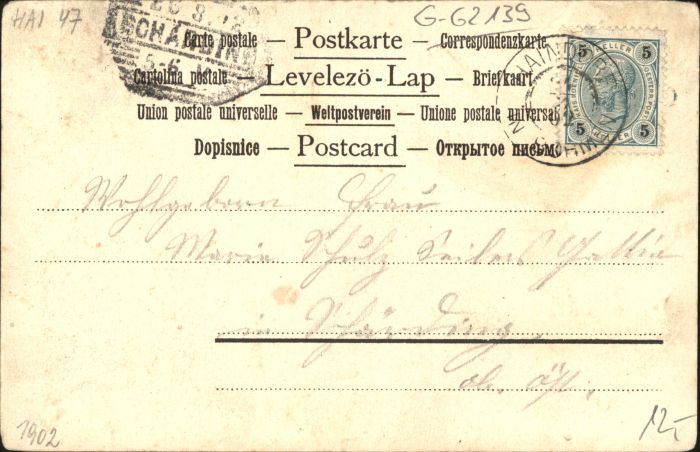 HAI 47
G-G2139
SCHÄRDING
5-6
Carte postale — Postkarte — Correspondenzkarte
Cartolina postale — Levelezö-Lap — Briefkaart
Union postale universelle — Weltpostverein — Unione postale universal
Dopisnice — Postcard — Открытое письмо
5 HELLER 5
5 5
Wohlgeborn Frau
Maria Schulz Seilers Gattin
in Schärding
ob. Öst.
1902
12,-